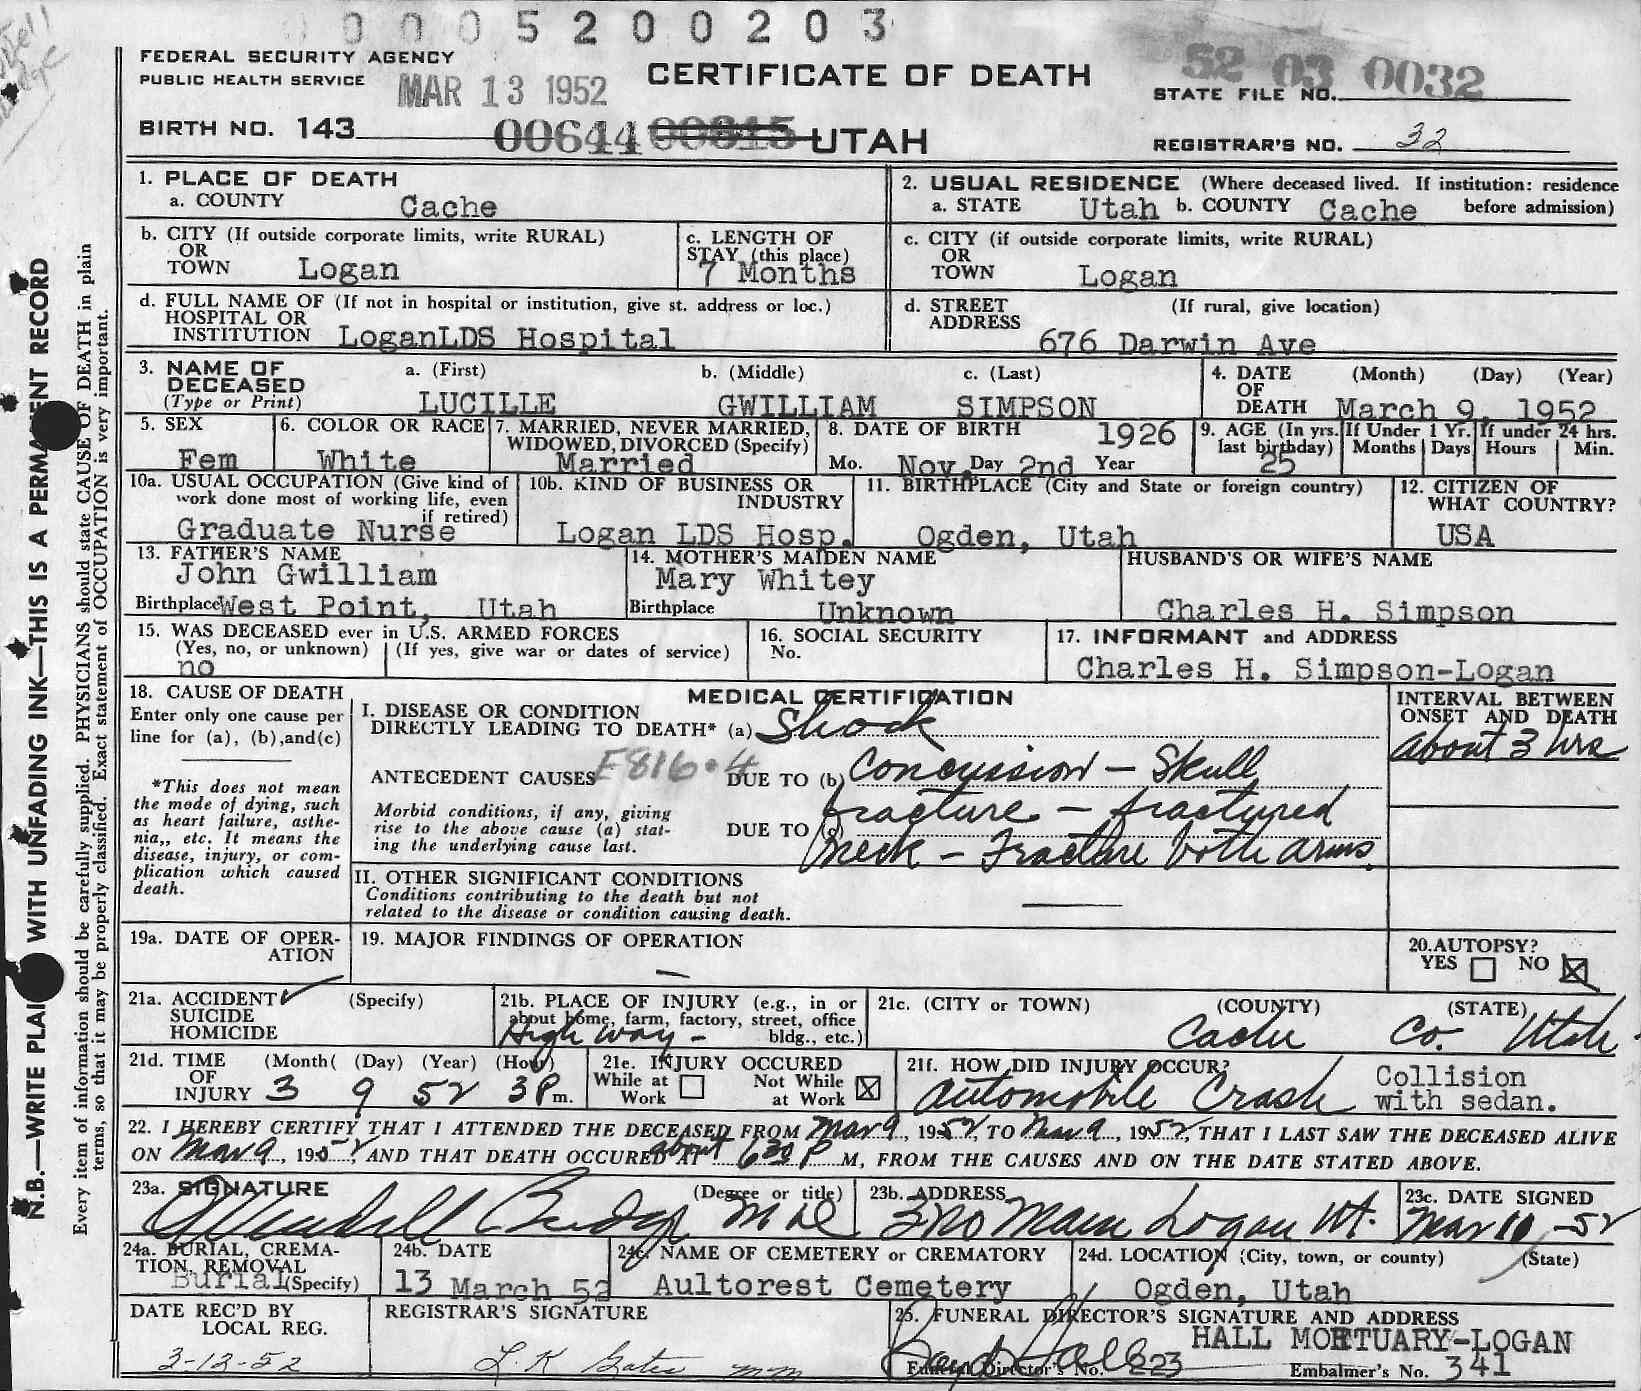 0 0 0 5 2 0 0 2 0 3
FEDERAL SECURITY AGENCY
PUBLIC HEALTH SERVICE
MAR 13 1952
CERTIFICATE OF DEATH
52 03 0032
STATE FILE NO.
BIRTH NO. 143
00644 00815 UTAH
REGISTRAR'S NO. 32
1. PLACE OF DEATH
a. COUNTY Cache
2. USUAL RESIDENCE (Where deceased lived. If institution: residence before admission)
a. STATE Utah b. COUNTY Cache
b. CITY (If outside corporate limits, write RURAL)
OR
TOWN Logan
c. LENGTH OF
STAY (this place)
7 Months
c. CITY (if outside corporate limits, write RURAL)
OR
TOWN Logan
d. FULL NAME OF (If not in hospital or institution, give st. address or loc.)
HOSPITAL OR
INSTITUTION LoganLDS Hospital
d. STREET (If rural, give location)
ADDRESS
676 Darwin Ave
3. NAME OF DECEASED
(Type or Print)
a. (First) b. (Middle) c. (Last)
LUCILLE GWILLIAM SIMPSON
4. DATE OF DEATH (Month) (Day) (Year)
March 9, 1952
5. SEX
Fem
6. COLOR OR RACE
White
7. MARRIED, NEVER MARRIED,
WIDOWED, DIVORCED (Specify)
Married
8. DATE OF BIRTH 1926
Mo. Nov. Day 2nd Year
9. AGE (In yrs. last birthday)
25
If Under 1 Yr.
Months Days
If under 24 hrs.
Hours Min.
10a. USUAL OCCUPATION (Give kind of
work done most of working life, even
if retired)
Graduate Nurse
10b. KIND OF BUSINESS OR
INDUSTRY
Logan LDS Hosp.
11. BIRTHPLACE (City and State or foreign country)
Ogden, Utah
12. CITIZEN OF
WHAT COUNTRY?
USA
13. FATHER'S NAME
John Gwilliam
Birthplace West Point, Utah
14. MOTHER'S MAIDEN NAME
Mary Whitey
Birthplace Unknown
HUSBAND'S OR WIFE'S NAME
Charles H. Simpson
15. WAS DECEASED ever in U.S. ARMED FORCES
(Yes, no, or unknown) (If yes, give war or dates of service)
no
16. SOCIAL SECURITY
No.
17. INFORMANT and ADDRESS
Charles H. Simpson-Logan
18. CAUSE OF DEATH
Enter only one cause per
line for (a), (b),and(c)
*This does not mean
the mode of dying, such
as heart failure, asthe-
nia,, etc. It means the
disease, injury, or com-
plication which caused
death.
MEDICAL CERTIFICATION
I. DISEASE OR CONDITION
DIRECTLY LEADING TO DEATH* (a) Shock
ANTECEDENT CAUSES E816.4 DUE TO (b) Concussion - Skull
Morbid conditions, if any, giving
rise to the above cause (a) stat-
ing the underlying cause last.
fracture - fractured
DUE TO (c) neck - Fracture both arms.
INTERVAL BETWEEN
ONSET AND DEATH
About 3 hrs
II. OTHER SIGNIFICANT CONDITIONS
Conditions contributing to the death but not
related to the disease or condition causing death.
19a. DATE OF OPER-
ATION
19. MAJOR FINDINGS OF OPERATION
20. AUTOPSY?
YES NO
21a. ACCIDENT (Specify)
SUICIDE
HOMICIDE
21b. PLACE OF INJURY (e.g., in or
about home, farm, factory, street, office
bldg., etc.)
High way -
21c. (CITY or TOWN) (COUNTY) (STATE)
Cache Co. Utah
21d. TIME (Month( (Day) (Year) (Hour)
OF
INJURY 3 9 52 3 P m.
21e. INJURY OCCURED
While at Work Not While at Work
21f. HOW DID INJURY OCCUR?
Automobile Crash
Collision
with sedan.
22. I HEREBY CERTIFY THAT I ATTENDED THE DECEASED FROM Mar 9, 1952, TO Mar 9, 1952, THAT I LAST SAW THE DECEASED ALIVE
ON Mar 9, 1952, AND THAT DEATH OCCURED AT about 630 P M, FROM THE CAUSES AND ON THE DATE STATED ABOVE.
23a. SIGNATURE (Degree or title)
Budge MD
23b. ADDRESS
Main Logan Ut.
23c. DATE SIGNED
Mar 10 -52
24a. BURIAL, CREMA-
TION, REMOVAL
Burial (Specify)
24b. DATE
13 March 52
24c. NAME OF CEMETERY or CREMATORY
Aultorest Cemetery
24d. LOCATION (City, town, or county) (State)
Ogden, Utah
DATE REC'D BY
LOCAL REG.
3-12-52
REGISTRAR'S SIGNATURE
L. K. Gates mm
25. FUNERAL DIRECTOR'S SIGNATURE AND ADDRESS
HALL MORTUARY-LOGAN
Funeral Director's No. 223
Embalmer's No. 341
N.B.—WRITE PLAI WITH UNFADING INK—THIS IS A PERMANENT RECORD
Every item of information should be carefully supplied. PHYSICIANS should state CAUSE OF DEATH in plain
terms, so that it may be properly classified. Exact statement of OCCUPATION is very important.